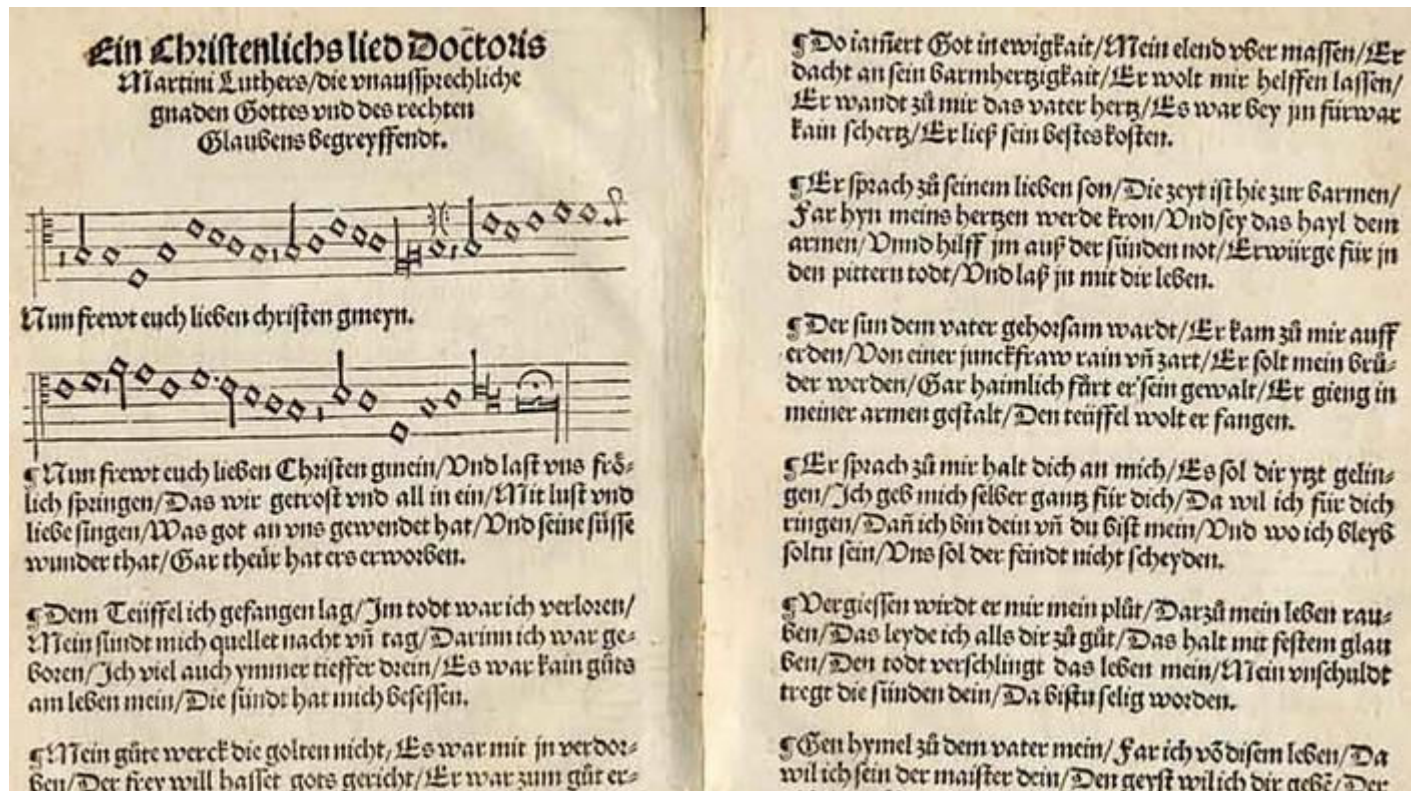 Ein Christenlichs lied Doctoris
Martini Luthers/die vnaussprechliche
gnaden Gottes vnd des rechten
Glaubens begreyffendt.
Nun frewt euch lieben christen gmeyn.
¶Nun frewt euch lieben Christen gmein/Vnd last vns frö⸗
lich springen/Das wir getrost vnd all in ein/Mit lust vnd
liebe singen/Was got an vns gewendet hat/Vnd seine süsse
wunder that/Gar theür hat ers erworben.
¶Dem Teüffel ich gefangen lag/Im todt war ich verloren/
Mein sündt mich quellet nacht vñ tag/Darinn ich war ge⸗
boren/Ich viel auch ymmer tieffer drein/Es war kain güts
am leben mein/Die sündt hat mich besessen.
¶Mein güte werck die golten nicht/Es war mit jn verdor⸗
ben/Der frey will hasset gots gericht/Er war zum güt er⸗
¶Do iam̃ert Got in ewigkait/Mein elend vber massen/Er
dacht an sein barmhertzigkait/Er wolt mir helffen lassen/
Er wandt zů mir das vater hertz/Es war bey jm fürwar
kain schertz/Er ließ sein bestes kosten.
¶Er sprach zů seinem lieben son/Die zeyt ist hie zur barmen/
Far hyn meins hertzen werde kron/Vnd sey das hayl dem
armen/Vnnd hilff jm auß der sünden not/Erwürge für jn
den pittern todt/Vnd laß jn mit dir leben.
¶Der sun dem vater gehorsam wardt/Er kam zů mir auff
erden/Von einer junckfraw rain vñ zart/Er solt mein brü⸗
der werden/Gar haimlich fürt er sein gewalt/Er gieng in
meiner armen gestalt/Den teüffel wolt er fangen.
¶Er sprach zů mir halt dich an mich/Es sol dir ytzt gelin⸗
gen/Ich geb mich selber gantz für dich/Da wil ich für dich
ringen/Dañ ich bin dein vñ du bist mein/Vnd wo ich bleyb
soltu sein/Vns sol der feindt nicht scheyden.
¶Vergiessen wirdt er mir mein plůt/Darzů mein leben rau⸗
ben/Das leyde ich alls dir zů gůt/Das halt mit festem glau
ben/Den todt verschlingt das leben mein/Mein vnschuldt
tregt die sünden dein/Da bistu selig worden.
¶Gen hymel zů dem vater mein/Far ich vō disem leben/Da
wil ich sein der maister dein/Den geyst wil ich dir gebē/Der